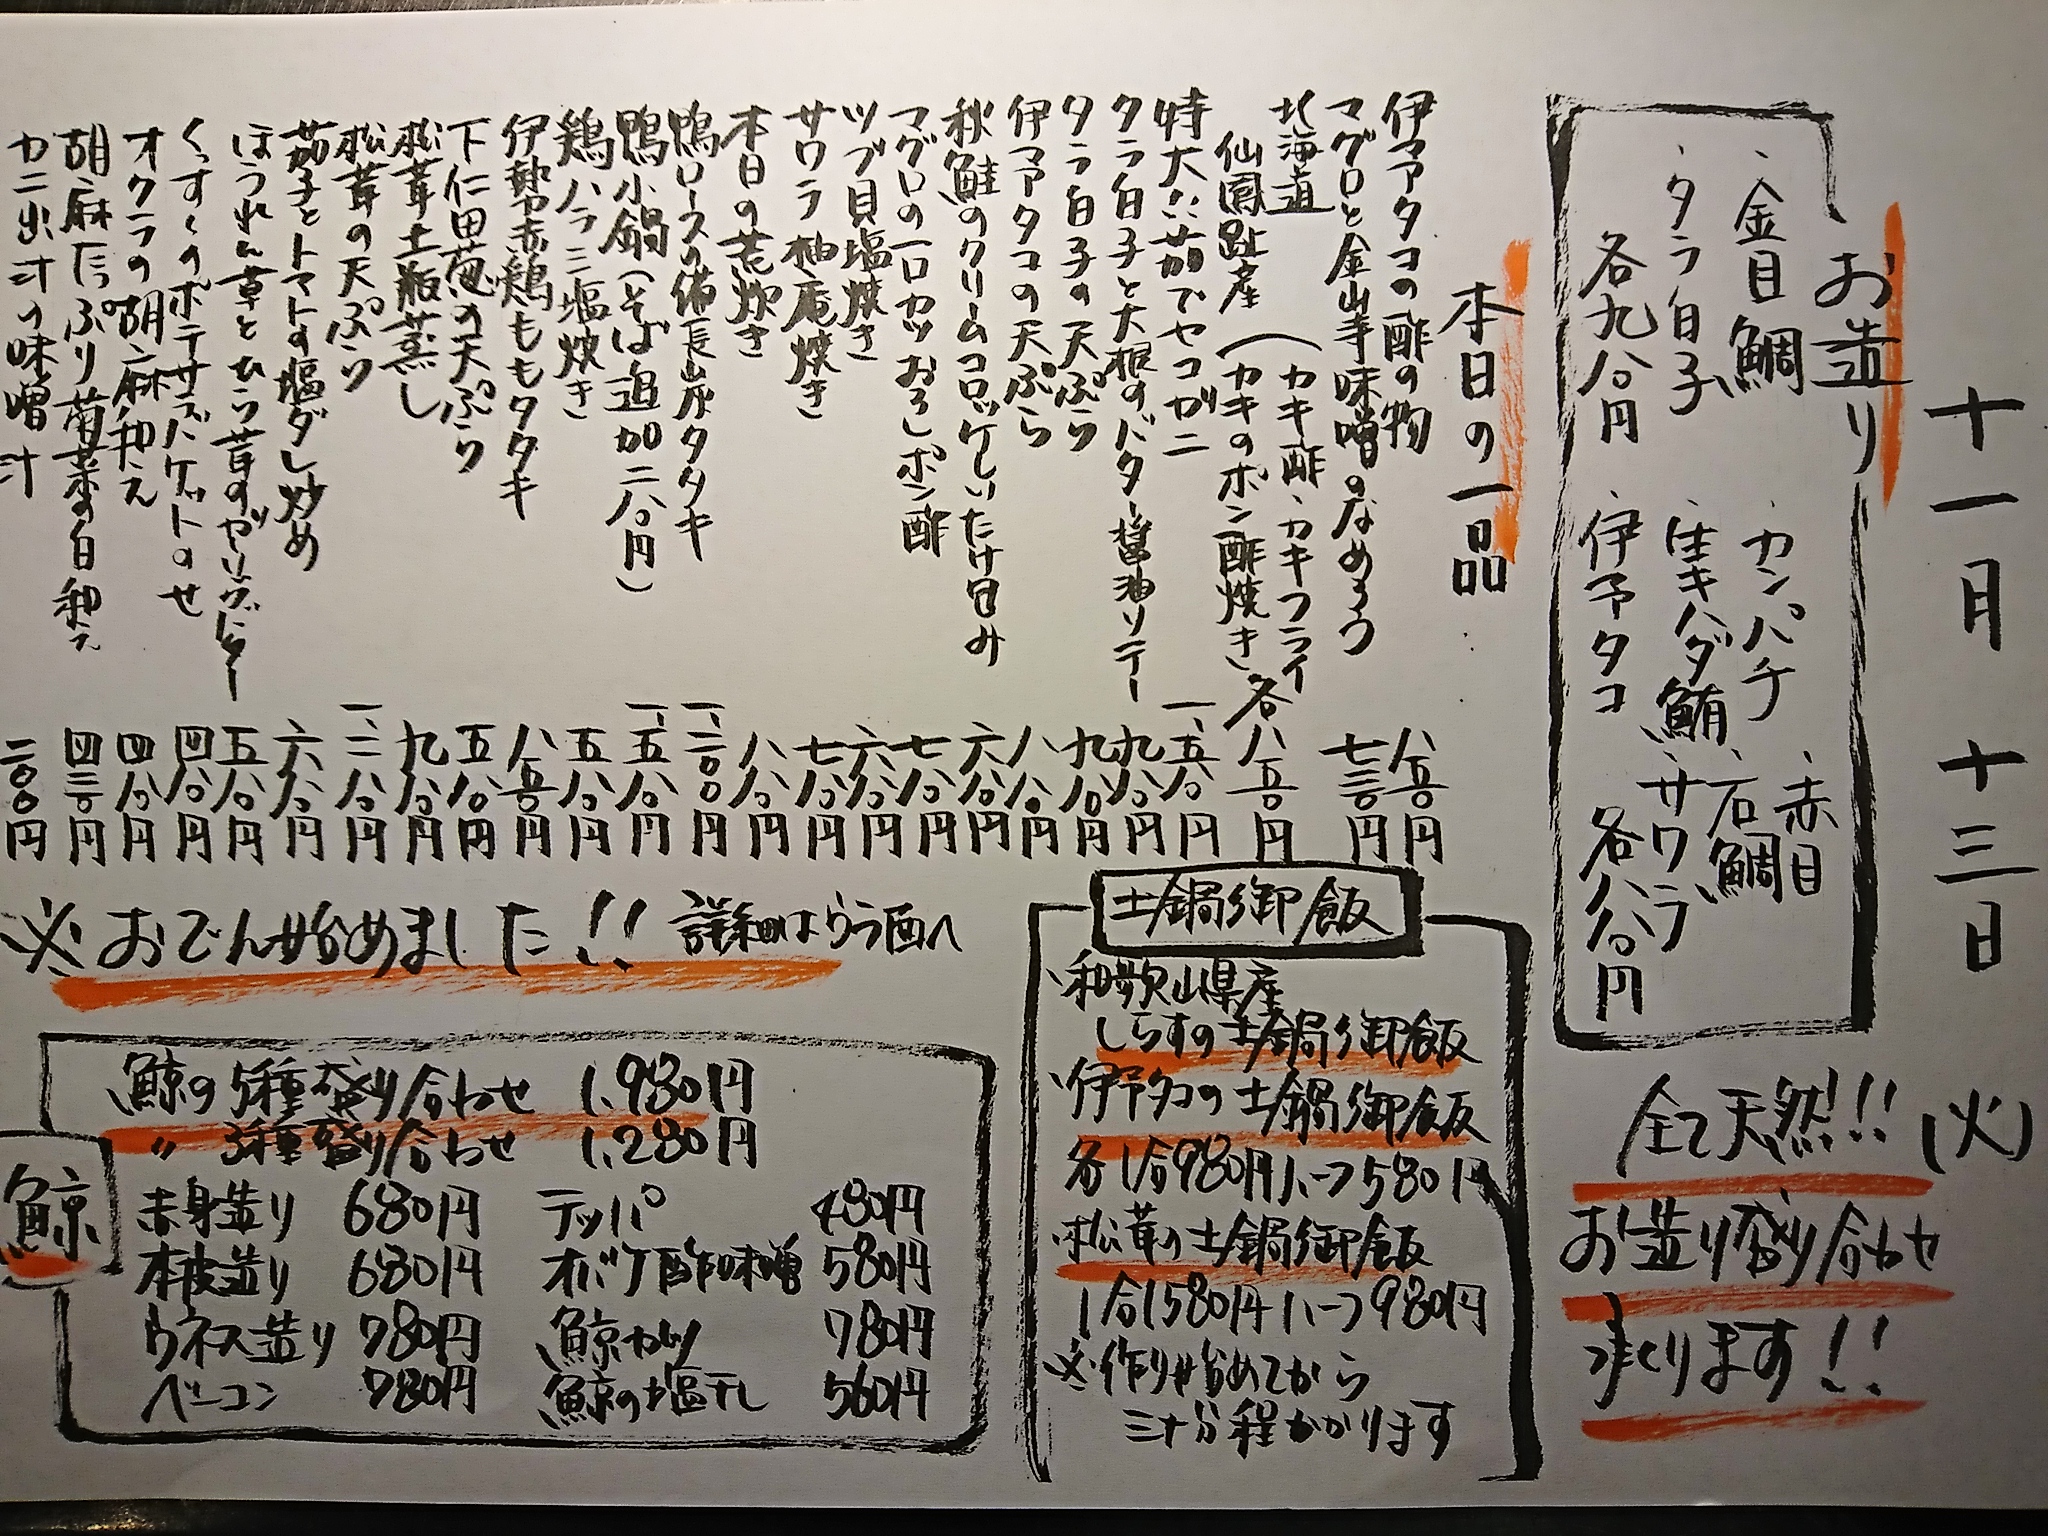 十一月十三日(火)
お造り
・金目鯛
・タラ白子
各九八〇円
・カンパチ
・生キハダ鮪
・伊予タコ
・赤目
・石鯛
・サワラ
各八八〇円
全て天然!!
お造り盛り合わせ
承ります!!
本日の一品
伊予タコの酢の物 八五〇円
マグロと金山寺味噌のなめろう 七三〇円
北海道
仙鳳趾産(カキ酢、カキフライ
(カキのポン酢焼き 各八五〇円
特大 茹でセコガニ 一、五八〇円
タラ白子と大根のバター醤油ソテー 九八〇円
タラ白子の天ぷら 九八〇円
伊予タコの天ぷら 八八〇円
秋鮭のクリームコロッケしいたけ包み 六八〇円
マグロの一口カツおろしポン酢 七八〇円
ツブ貝塩焼き 六八〇円
サワラ柚庵焼き 七八〇円
本日の荒炊き 八八〇円
鴨ロースの備長炭タタキ 一、二〇〇円
鴨小鍋(そば追加二八〇円) 一、五八〇円
鶏ハラミ塩焼き 五八〇円
伊勢赤鶏ももタタキ 八五〇円
下仁田葱の天ぷら 五八〇円
松茸土瓶蒸し 九八〇円
松茸の天ぷら 一、二八〇円
茄子とトマトの塩ダレ炒め 六八〇円
ほうれん草とひら茸のガーリックバター 五八〇円
くんすくのポテサラバケットのせ 四八〇円
オクラの胡麻和え 四八〇円
胡麻たっぷり菊菜の白和え 四三〇円
カニ出汁の味噌汁 二〇〇円
※おでん始めました!! 詳細はウラ面へ
土鍋御飯
・和歌山県産
しらすの土鍋御飯
・伊予タコの土鍋御飯
各1合980円ハーフ580円
・松茸の土鍋御飯
1合1580円ハーフ980円
※作り始めてから
三十分程かかります
鯨
鯨の5種盛り合わせ 1,980円
〃 3種盛り合わせ 1,280円
赤身造り 680円
本皮造り 680円
ウネス造り 780円
ベーコン 780円
テッパ 480円
オバケ酢味噌 580円
鯨カツ 780円
鯨の塩干し 560円